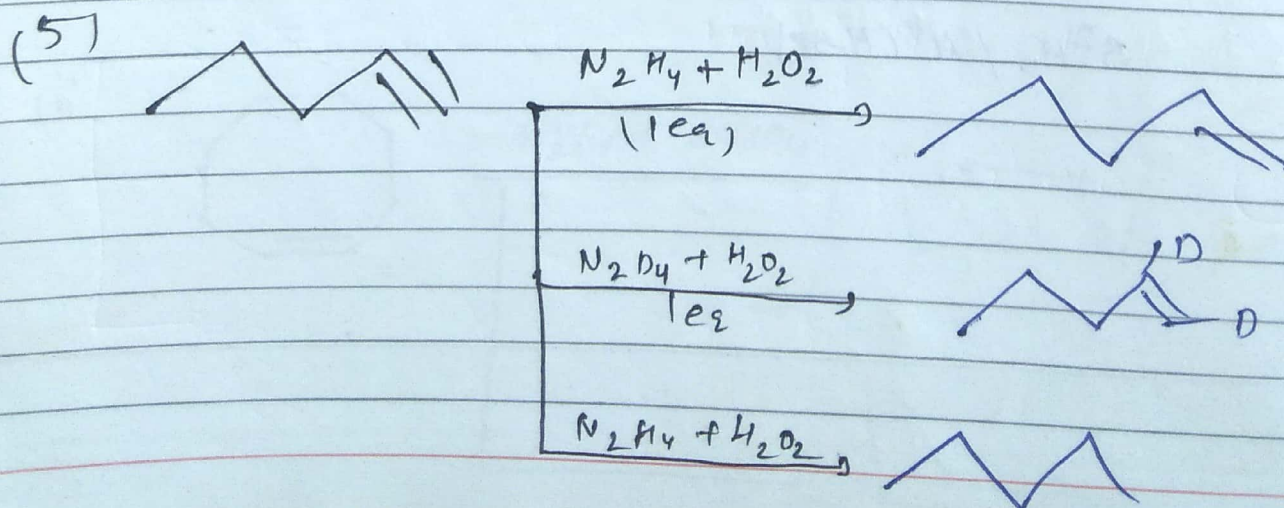 (5)
N2H4 + H2O2
(1eq)
D
N2D4 + H2O2
1eq
D
N2H4 + H2O2